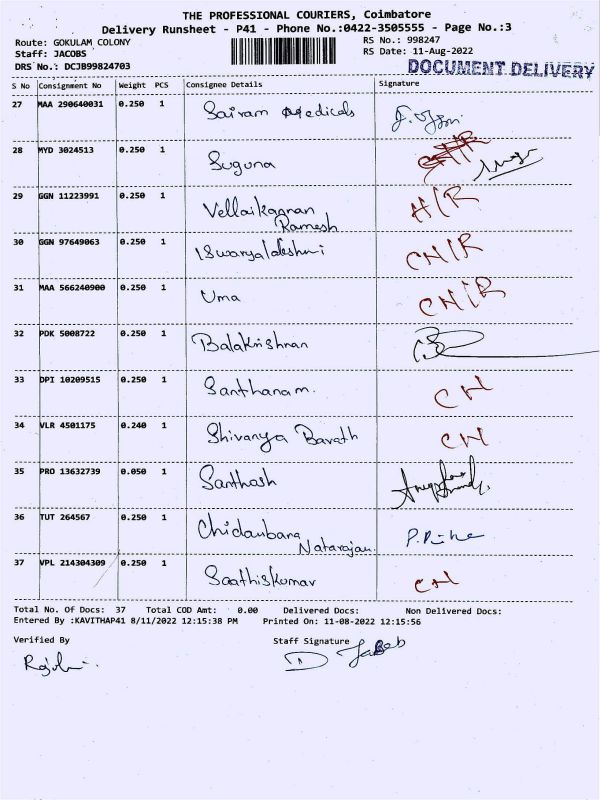 THE PROFESSIONAL COURIERS, Coimbatore
Delivery Runsheet - P41 - Phone No.:0422-3505555 - Page No.:3
Route: GOKULAM COLONY RS No.: 998247
Staff: JACOBS RS Date: 11-Aug-2022
DRS No.: DCJB99824703 DOCUMENT DELIVERY
S No Consignment No Weight PCS Consignee Details Signature
27 MAA 290640031 0.250 1 Sairam Medicals
28 MYD 3024513 0.250 1 Suguna
29 GGN 11223991 0.250 1 Vellaikannan Ramesh H/R
30 GGN 97649063 0.250 1 Iswaryalakshmi CN/R
31 MAA 566240900 0.250 1 Uma CN/R
32 PDK 5008722 0.250 1 Balakrishnan
33 DPI 10209515 0.250 1 Santhanam. CN
34 VLR 4501175 0.240 1 Shivanya Barath CN
35 PRO 13632739 0.050 1 Santhosh
36 TUT 264567 0.250 1 Chidambara Natarajan
37 VPL 214304309 0.250 1 Saathiskumar CN
Total No. Of Docs: 37 Total COD Amt: 0.00 Delivered Docs: Non Delivered Docs:
Entered By :KAVITHAP41 8/11/2022 12:15:38 PM Printed On: 11-08-2022 12:15:56
Verified By Staff Signature
D Jacob